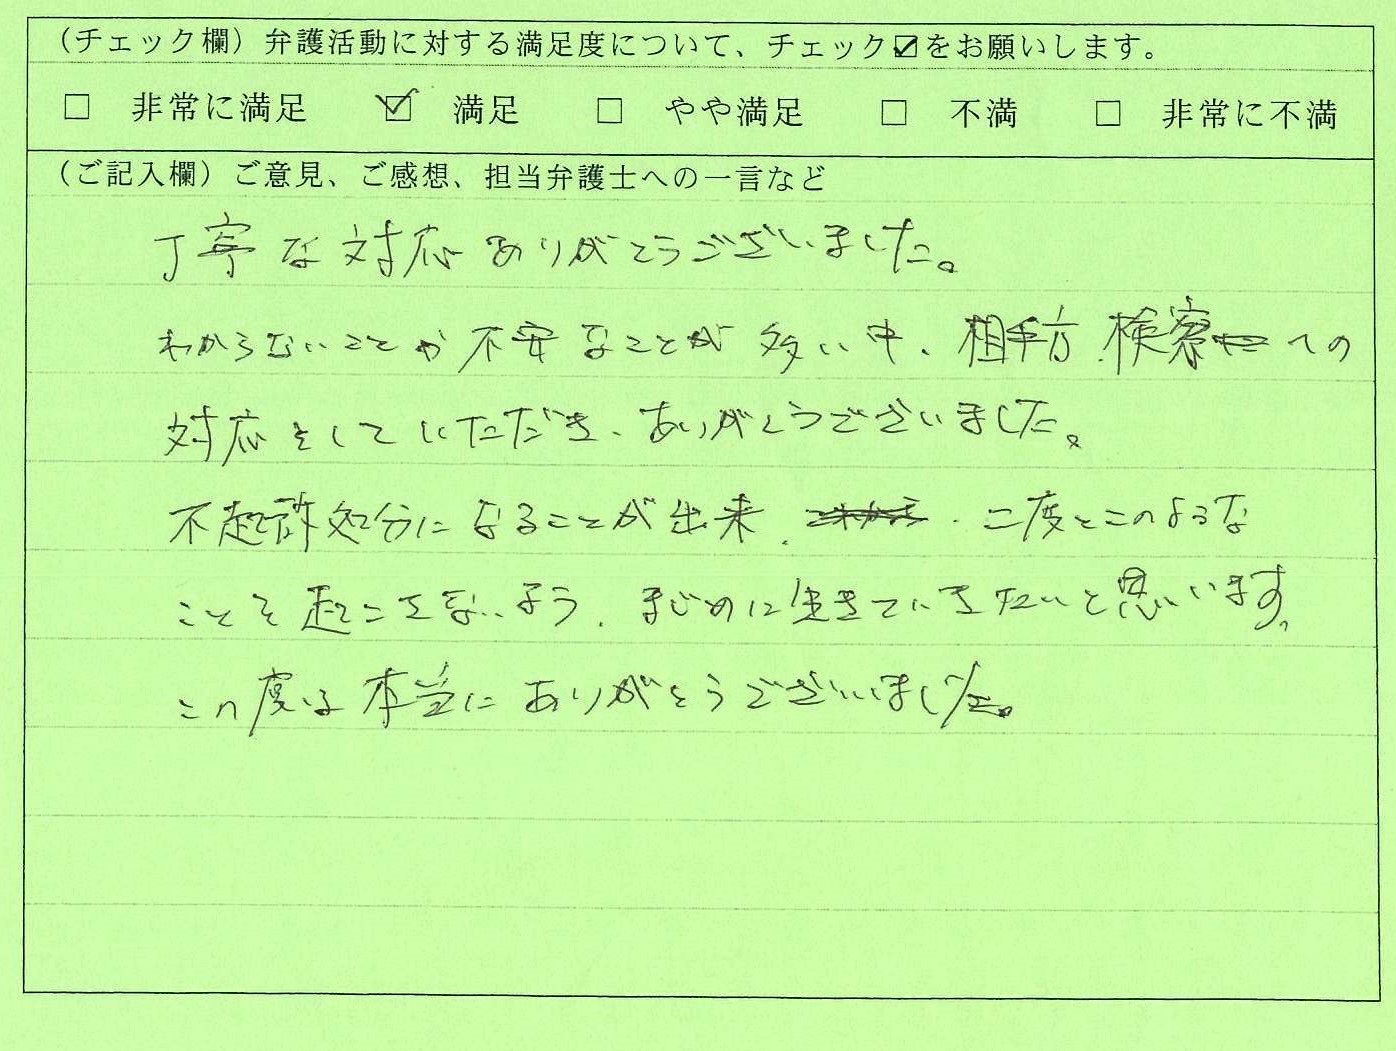 （チェック欄）弁護活動に対する満足度について、チェック☑をお願いします。
□ 非常に満足 ☑ 満足 □ やや満足 □ 不満 □ 非常に不満
（ご記入欄）ご意見、ご感想、担当弁護士への一言など
丁寧な対応ありがとうございました。
わからないことや不安なことが多い中、相手方、検察への
対応をしていただき、ありがとうございました。
不起訴処分になることが出来、二度とこのような
ことを起こさないよう、まじめに生きていきたいと思います。
この度は本当にありがとうございました。